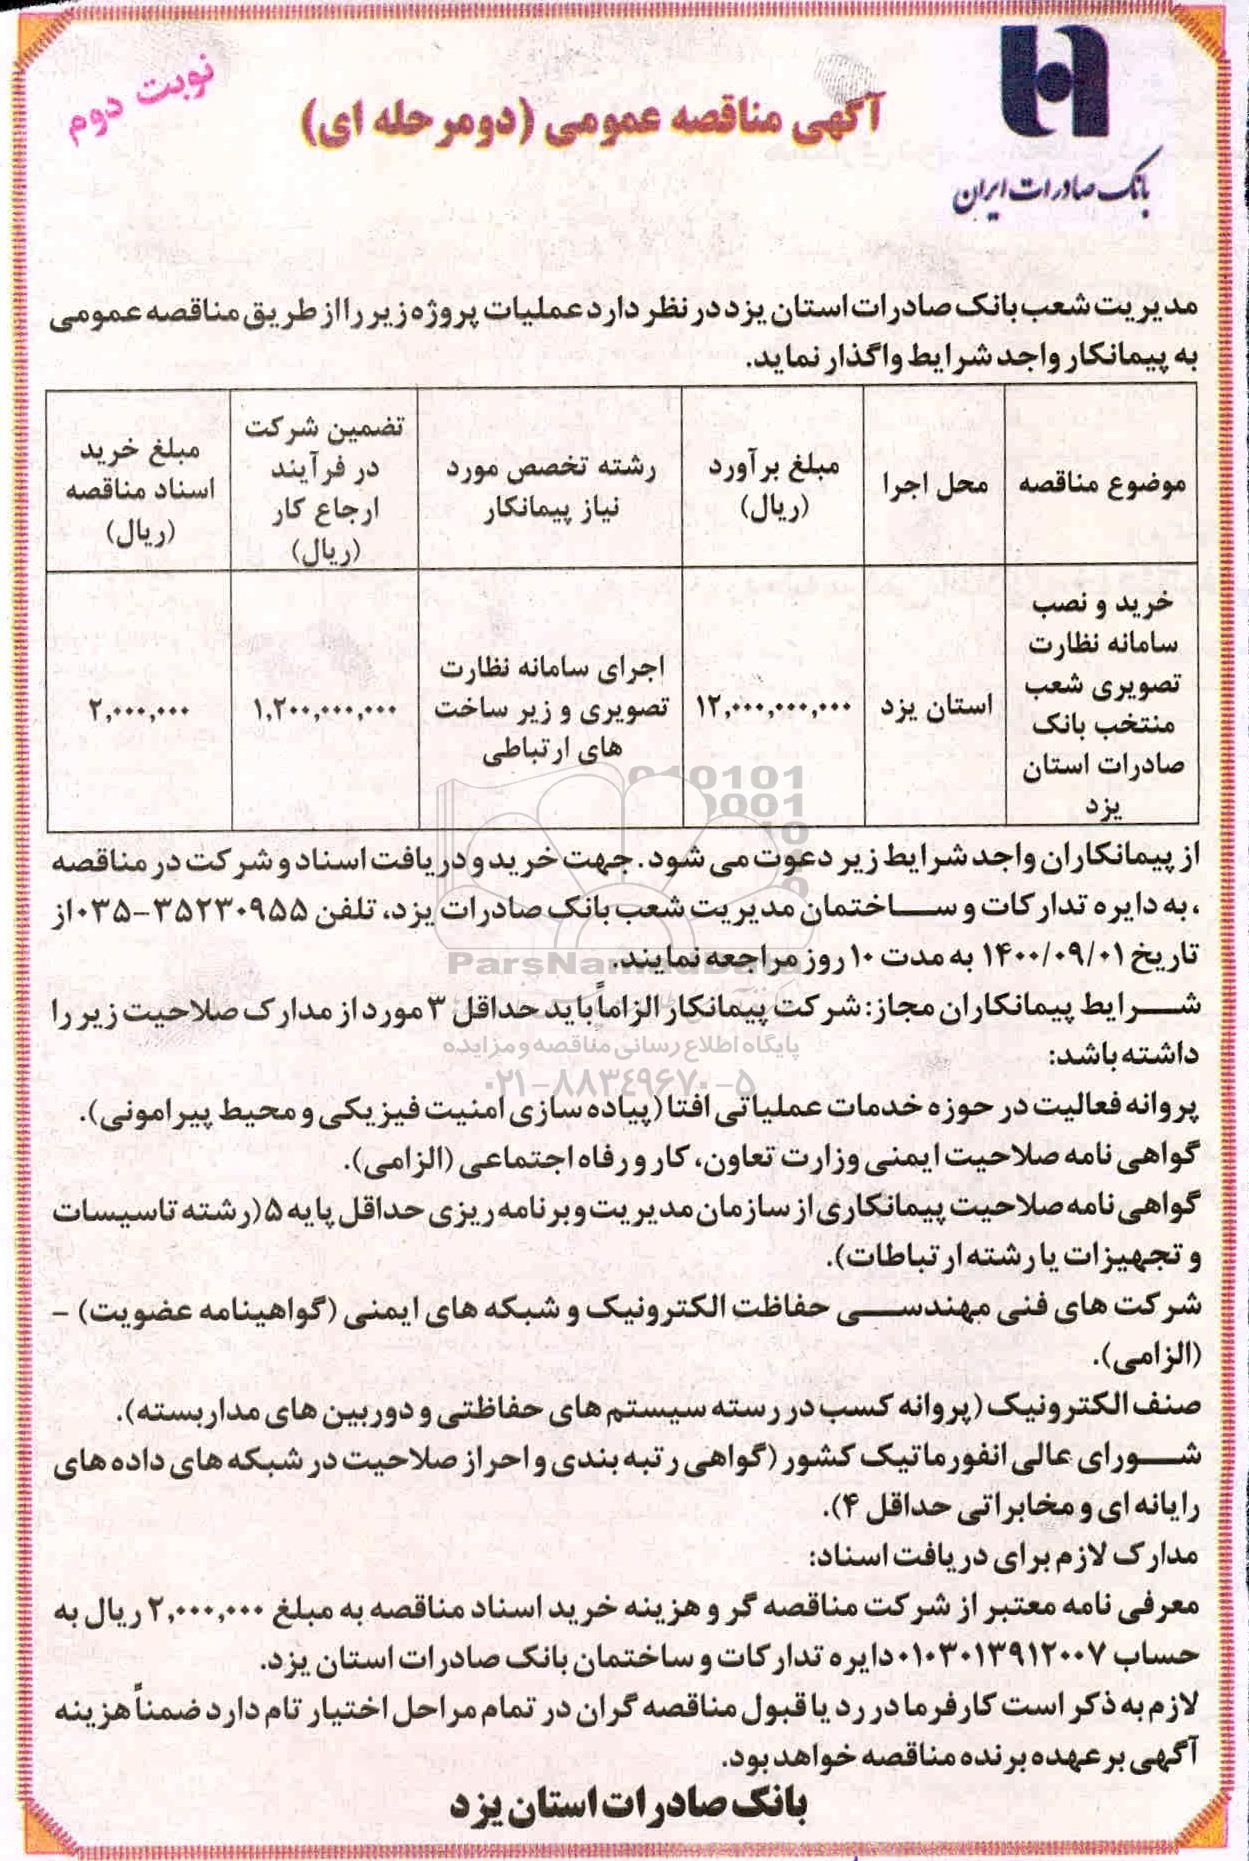 نوبت دوم
آگهی مناقصه عمومی (دومرحله ای)
بانک صادرات ایران
مدیریت شعب بانک صادرات استان یزد در نظر دارد عملیات پروژه زیر را از طریق مناقصه عمومی
به پیمانکار واجد شرایط واگذار نماید.
موضوع مناقصه
محل اجرا
مبلغ برآورد
(ریال)
رشته تخصص مورد
نیاز پیمانکار
تضمین شرکت
در فرآیند
ارجاع کار
(ریال)
مبلغ خرید
اسناد مناقصه
(ریال)
خرید و نصب
سامانه نظارت
تصویری شعب
منتخب بانک
صادرات استان
یزد
استان یزد
۱۲,۰۰۰,۰۰۰,۰۰۰
اجرای سامانه نظارت
تصویری و زیر ساخت
های ارتباطی
۱,۲۰۰,۰۰۰,۰۰۰
۲,۰۰۰,۰۰۰
از پیمانکاران واجد شرایط زیر دعوت می شود. جهت خرید و دریافت اسناد و شرکت در مناقصه
، به دایره تدارکات و ساختمان مدیریت شعب بانک صادرات یزد، تلفن ۳۵۲۳۰۹۵۵-۰۳۵ از
تاریخ ۱۴۰۰/۰۹/۰۱ به مدت ۱۰ روز مراجعه نمایند.
ParsNamadData
شرایط پیمانکاران مجاز: شرکت پیمانکار الزاماً باید حداقل ۳ مورد از مدارک صلاحیت زیر را
پایگاه اطلاع رسانی مناقصه و مزایده
داشته باشد:
۰۲۱-۸۸۳۴۹۶۷۰-۵
پروانه فعالیت در حوزه خدمات عملیاتی افتا (پیاده سازی امنیت فیزیکی و محیط پیرامونی).
گواهی نامه صلاحیت ایمنی وزارت تعاون، کار و رفاه اجتماعی (الزامی).
گواهی نامه صلاحیت پیمانکاری از سازمان مدیریت و برنامه ریزی حداقل پایه ۵ (رشته تاسیسات
و تجهیزات یا رشته ارتباطات).
شرکت های فنی مهندسی حفاظت الکترونیک و شبکه های ایمنی (گواهینامه عضویت) -
(الزامی).
صنف الکترونیک (پروانه کسب در رسته سیستم های حفاظتی و دوربین های مداربسته).
شورای عالی انفورماتیک کشور (گواهی رتبه بندی و احراز صلاحیت در شبکه های داده های
رایانه ای و مخابراتی حداقل ۴).
مدارک لازم برای دریافت اسناد:
معرفی نامه معتبر از شرکت مناقصه گر و هزینه خرید اسناد مناقصه به مبلغ ۲,۰۰۰,۰۰۰ ریال به
حساب ۰۱۰۳۰۱۳۹۱۲۰۰۷ دایره تدارکات و ساختمان بانک صادرات استان یزد.
لازم به ذکر است کارفرما در رد یا قبول مناقصه گران در تمام مراحل اختیار تام دارد ضمناً هزینه
آگهی بر عهده برنده مناقصه خواهد بود.
بانک صادرات استان یزد